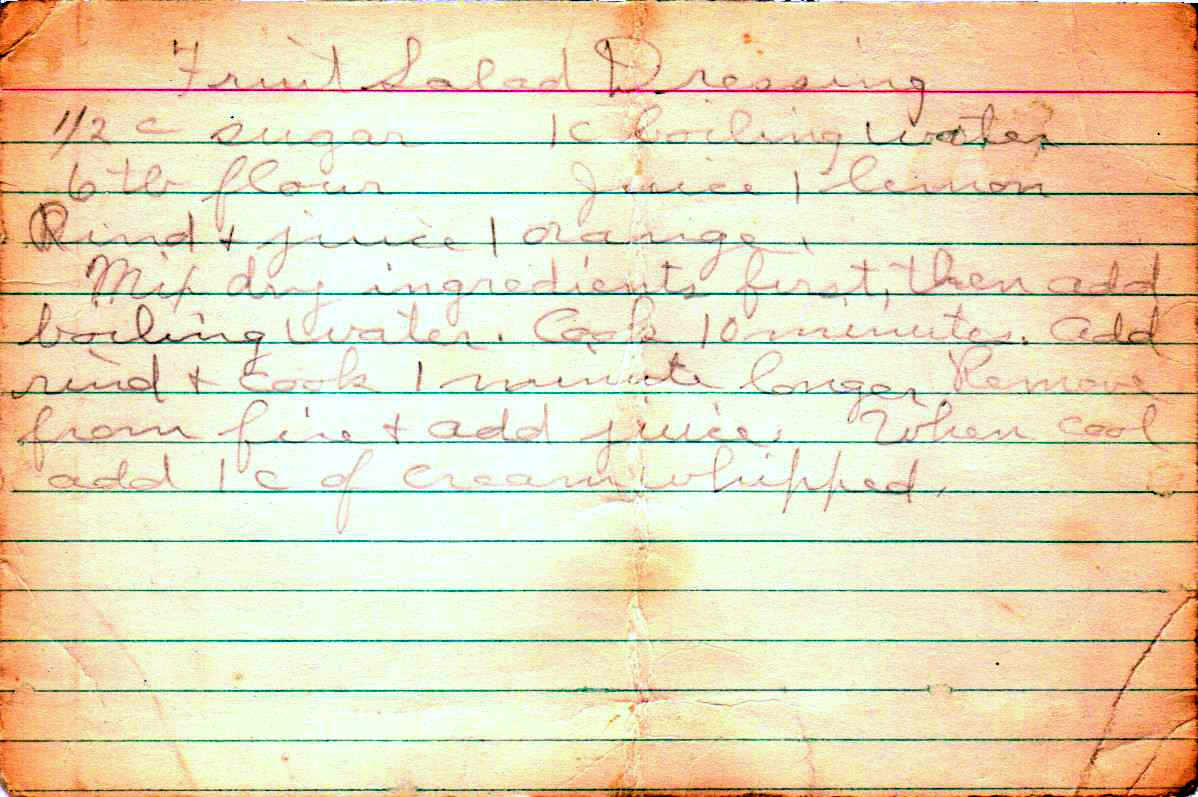 Fruit Salad Dressing
1/2 c sugar 1c boiling water
6 tb flour Juice 1 lemon
Rind + juice 1 orange.
Mix dry ingredients first, then add
boiling water. Cook 10 minutes. Add
rind + cook 1 minute longer. Remove
from fire + add juice. When cool
add 1 c of cream whipped.